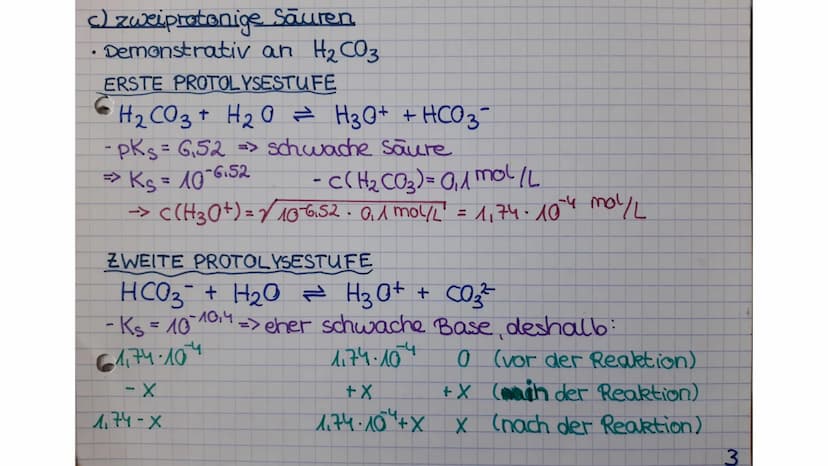 c) zweiprotonige Säuren
· Demonstrativ an H₂CO₃
ERSTE PROTOLYSESTUFE
H₂CO₃ + H₂O ⇌ H₃O⁺ + HCO₃⁻
- pKₛ = 6,52 => schwache Säure
=> Kₛ = 10⁻⁶·⁵² - c(H₂CO₃) = 0,1 mol/L
→ c(H₃O⁺) = √(10⁻⁶·⁵² · 0,1 mol/L) = 1,74 · 10⁻⁴ mol/L
ZWEITE PROTOLYSESTUFE
HCO₃⁻ + H₂O ⇌ H₃O⁺ + CO₃²⁻
- Kₛ = 10⁻¹⁰·⁴ => eher schwache Base, deshalb:
1,74 · 10⁻⁴ 1,74 · 10⁻⁴ 0 (vor der Reaktion)
- x + x + x (in der Reaktion)
1,74 - x 1,74 · 10⁻⁴ + x x (nach der Reaktion)
3